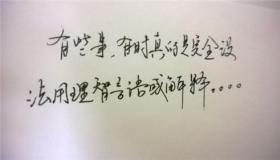 有些事,有时真的是完全没
法用理智言语或解释....